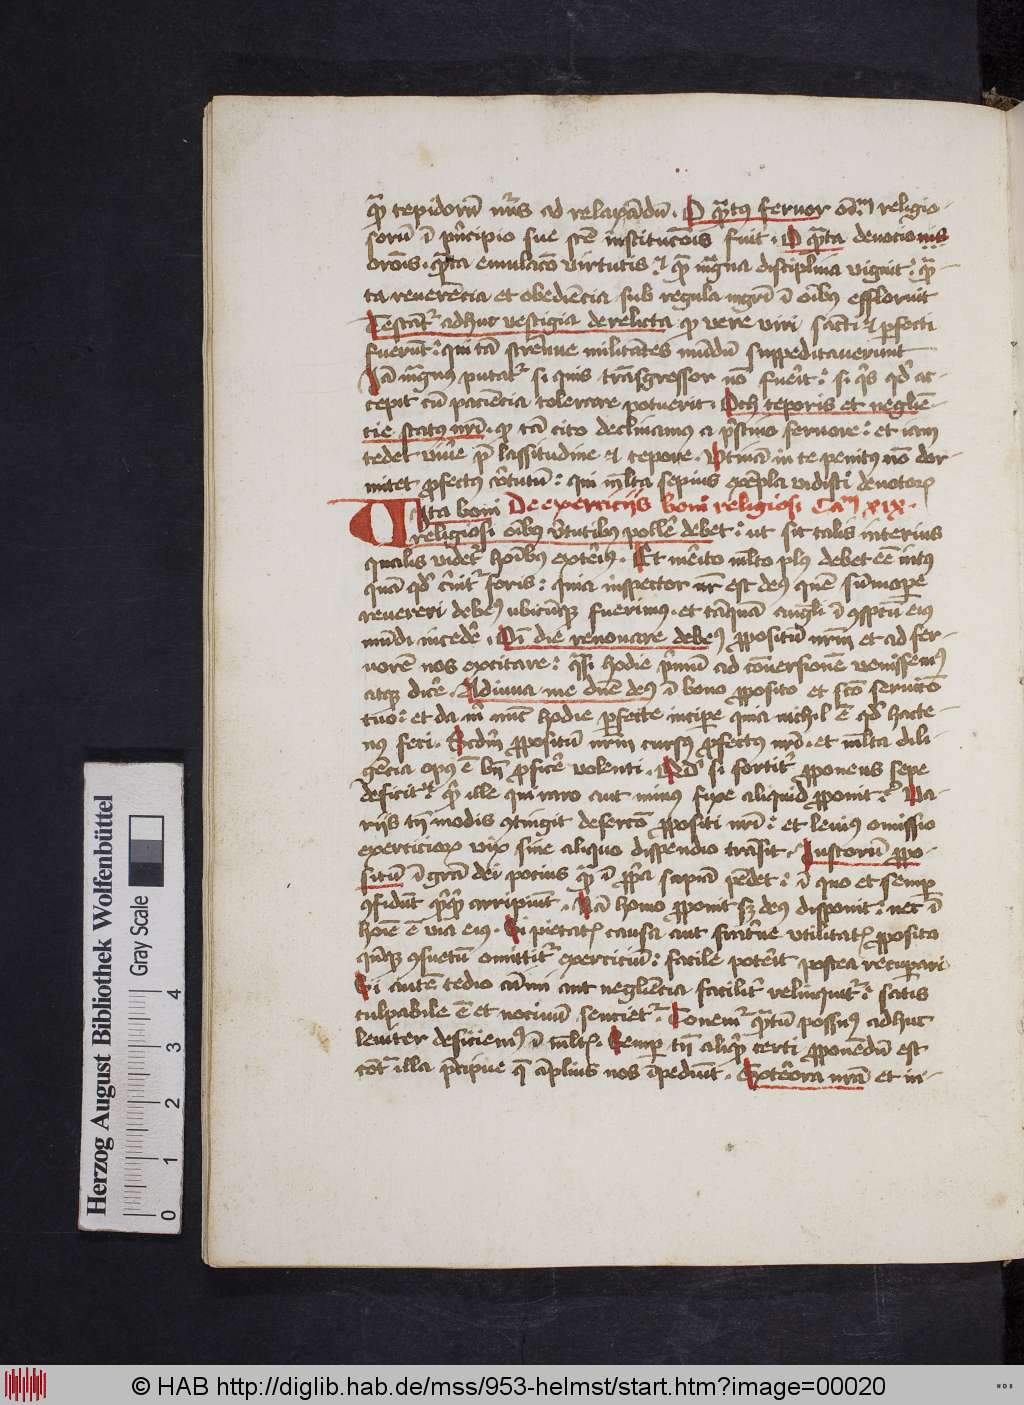 qm̄ tepidorū nr̄is ad relaxādū. O qr̄tus feruor oīm religio-
sorū ī pn̄cipio sue sc̄e institucōis fuit. O qr̄ta deuocionis
orōis. qr̄ta emulacō virtutis. et qr̄ maḡna disciplina viguit. qr̄-
ta reuerēcia et obediēcia sub regula mgr̄i ī oībus effloruit
Testāt̄ adhuc vestigia derelicta qr vere viri sancti et pfecti
fuerūt. qui tā strēnue militātes mūdū suppeditauerūt
Iā maḡnus putat̄ si quis trāsgressor nō fuerit. si qs qd ac-
cepit cū paciēcia tolerare potuerit. Och teporis et negliē-
cie status nr̄i. qr tā cito declinamus a pristino feruore. et iam
tedet viue p̄ lassitudine et tepore. Utinā in te penitus nō dor-
mitet pfectus v̄tutū. qui ml̄ta sepius exēpla vidisti deuotor
Vita boni De exercicijs boni religiosi Cam XIX.
religiosi oībus v̄tutibus polle debet. ut sit talis interius
qualis videt̄ hoībus exterius. Et mēito ml̄to plus debet eē intus
quā qd c̄nit̄ foris. quia inspector nr̄ est deus quē sūmope
reuereri debem9 ubicūqz fuerimus. et tāquā angl̄i ī 9spectu eius
mūdi incede. Oī die renouare debem9 ppositū nrm̄ et ad fer-
uorē nos excitare. qsi hodie p̄mū ad cōuersionē venissem9
atqz dice. Adiuua me dn̄e deus ī bono pposito et sc̄o seruicio
tuo. et da m̄ nūc hodie pfecte incipe quia nichil ē qd hacte-
nus feci. Scdm̄ ppositū nrm̄ cursus pfectus nr̄i. et ml̄ta dili-
gēcia opus ē bn̄ pfice volenti. Qd si fortit̄ pponens sepe
deficit. qd ille qui raro aut minus fixe aliquid pponit. Va-
rijs tn̄ modis 9tingit desercō ppositi nr̄i. et leuius omissio
exercicior vix sine aliquo dispendio trāsit. Iustorū ppo-
situ ī grā dei pocius qr̄ ī ppria sapiā pēdet. ī quo et semp
9fidūt qcqd arripiūt. Nā homo pponit sz deus disponit. nec ī
hoīe ē via eius. Si pietatis causa aut fraterne vtilitatis pposito
qn̄qz 9suetū omittit̄ exerciciū. facile poterit postea recupari
Si autē tedio aīmi aut negliēcia facilit̄ relinquit̄. satis
culpabile ē et nociuū senciet̄. Conem̄ qr̄tū possum9 adhuc
leuiter deficiem9 ī ml̄tis. Semp tn̄ aliqd certi pponēdū est
cōt̄ illa p̄cipue q̄ āplius nos īpediūt. Exteriora nr̄a et in-
Herzog August Bibliothek Wolfenbüttel
Gray Scale
0 1 2 3 4
© HAB http://diglib.hab.de/mss/953-helmst/start.htm?image=00020